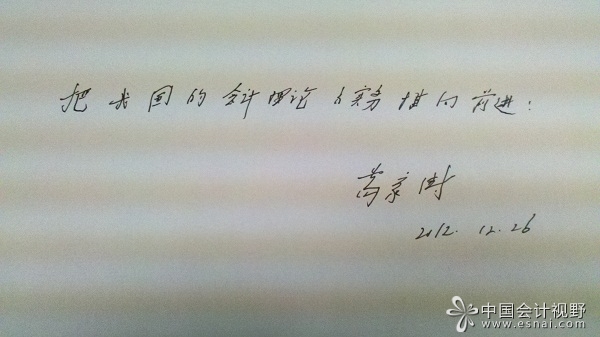 把我国的会计理论与实务推向前进!
葛家澍
2012.12.26
中国会计视野
www.esnai.com